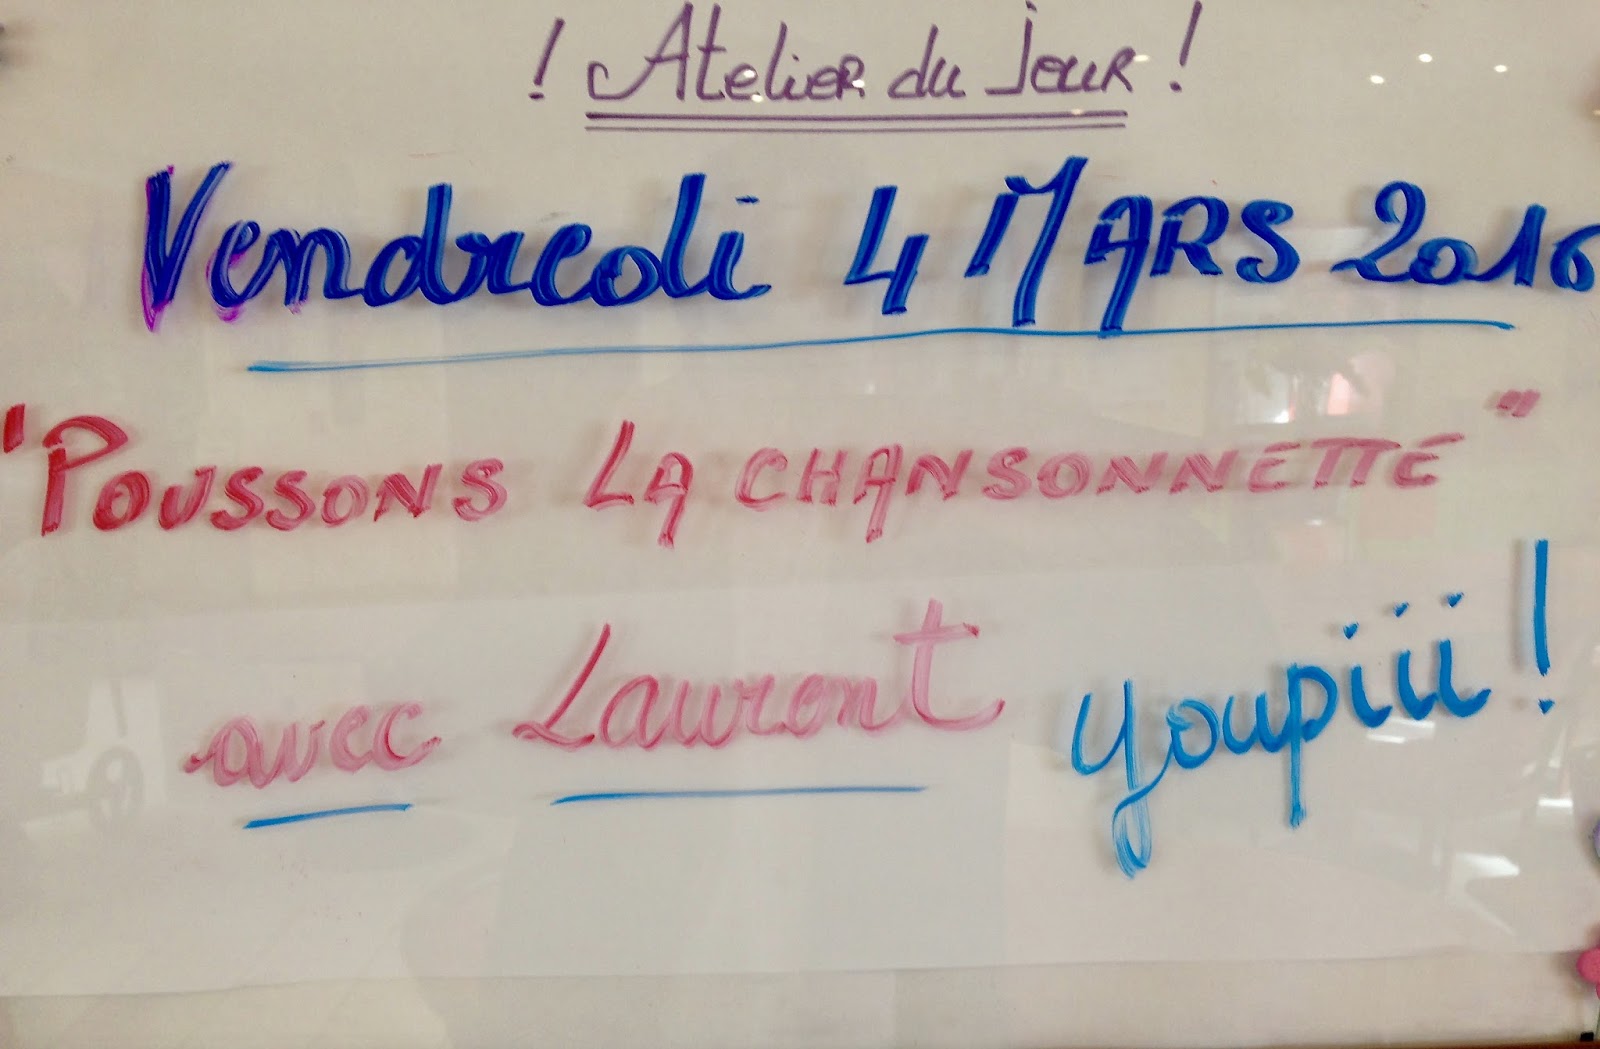 ! Atelier du Jour !
Vendredi 4 MARS 2016
"POUSSONS LA CHANSONNETTE"
avec Laurent youpiii !